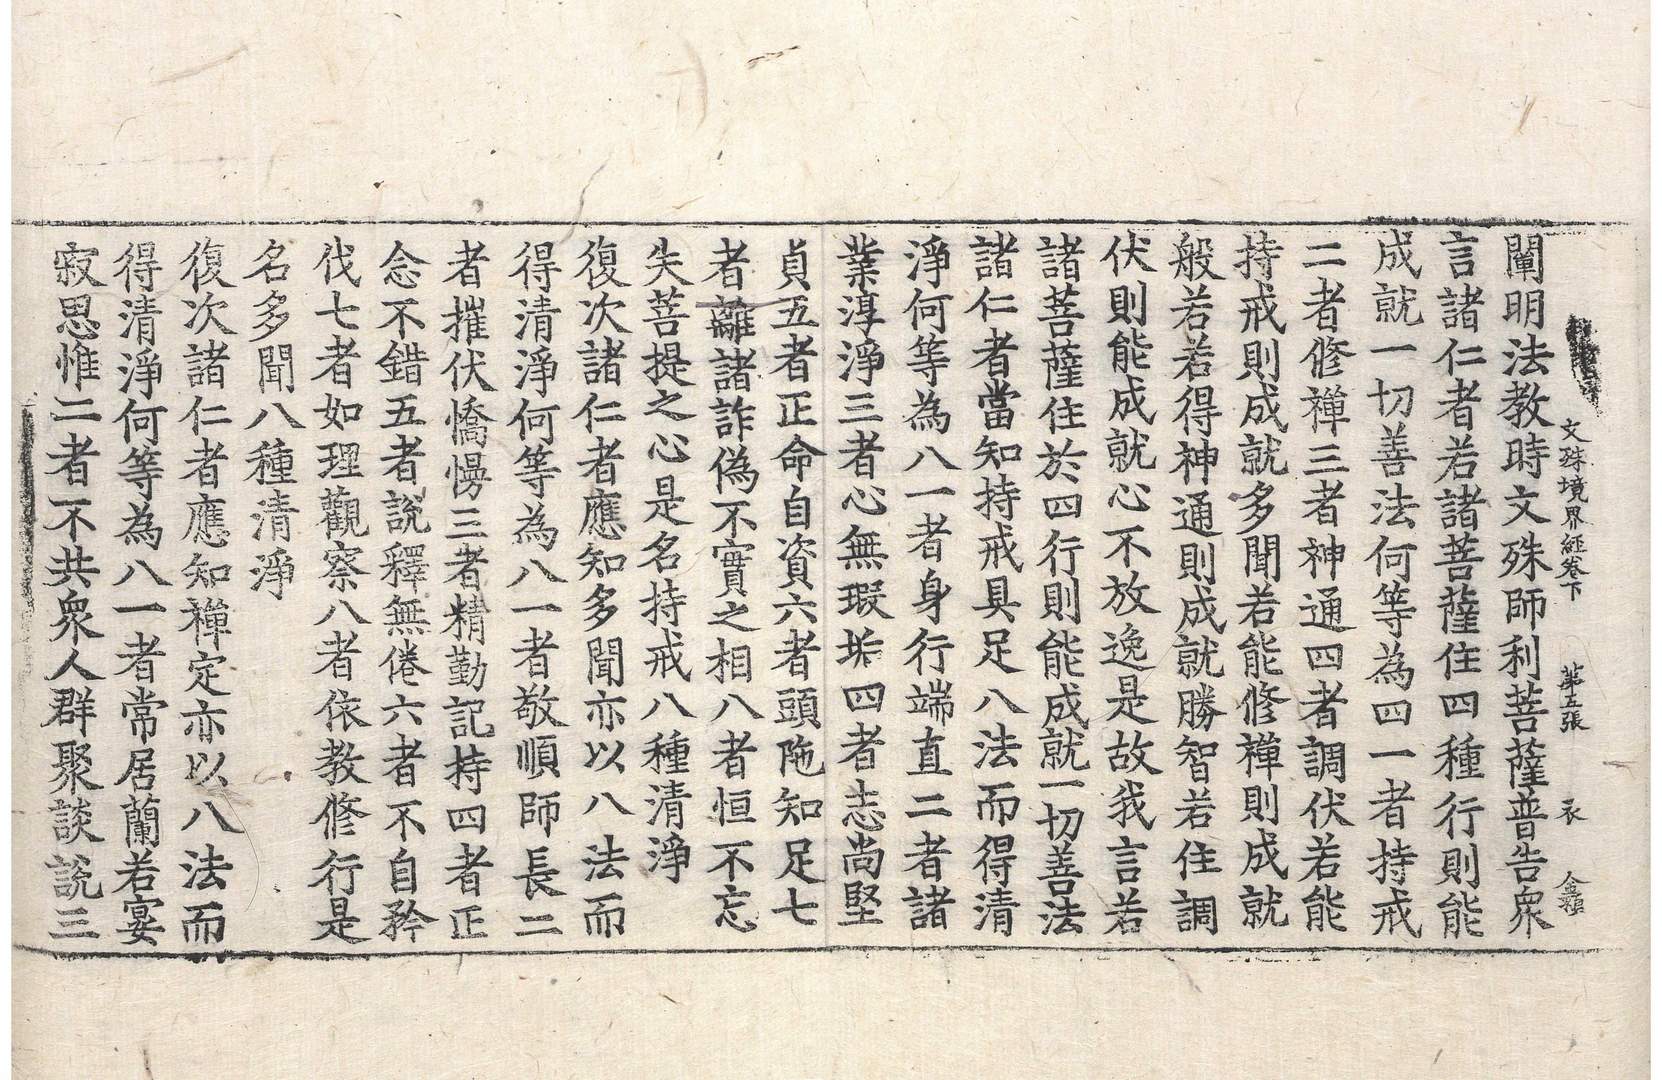 文殊境界經卷下 第五張 衣 金種
闡明法教時文殊師利菩薩普告衆
言諸仁者若諸菩薩住四種行則能
成就一切善法何等為四一者持戒
二者修禪三者神通四者調伏若能
持戒則成就多聞若能修禪則成就
般若若得神通則成就勝智若住調
伏則能成就心不放逸是故我言若
諸菩薩住於四行則能成就一切善法
諸仁者當知持戒具足八法而得清
淨何等為八一者身行端直二者諸
業淳淨三者心無瑕垢四者志尚堅
貞五者正命自資六者頭陁知足七
者離諸詐偽不實之相八者恒不忘
失菩提之心是名持戒八種清淨
復次諸仁者應知多聞亦以八法而
得清淨何等為八一者敬順師長二
者摧伏憍慢三者精勤記持四者正
念不錯五者說釋無倦六者不自矜
伐七者如理觀察八者依教修行是
名多聞八種清淨
復次諸仁者應知禪定亦以八法而
得清淨何等為八一者常居蘭若宴
寂思惟二者不共衆人群聚談說三